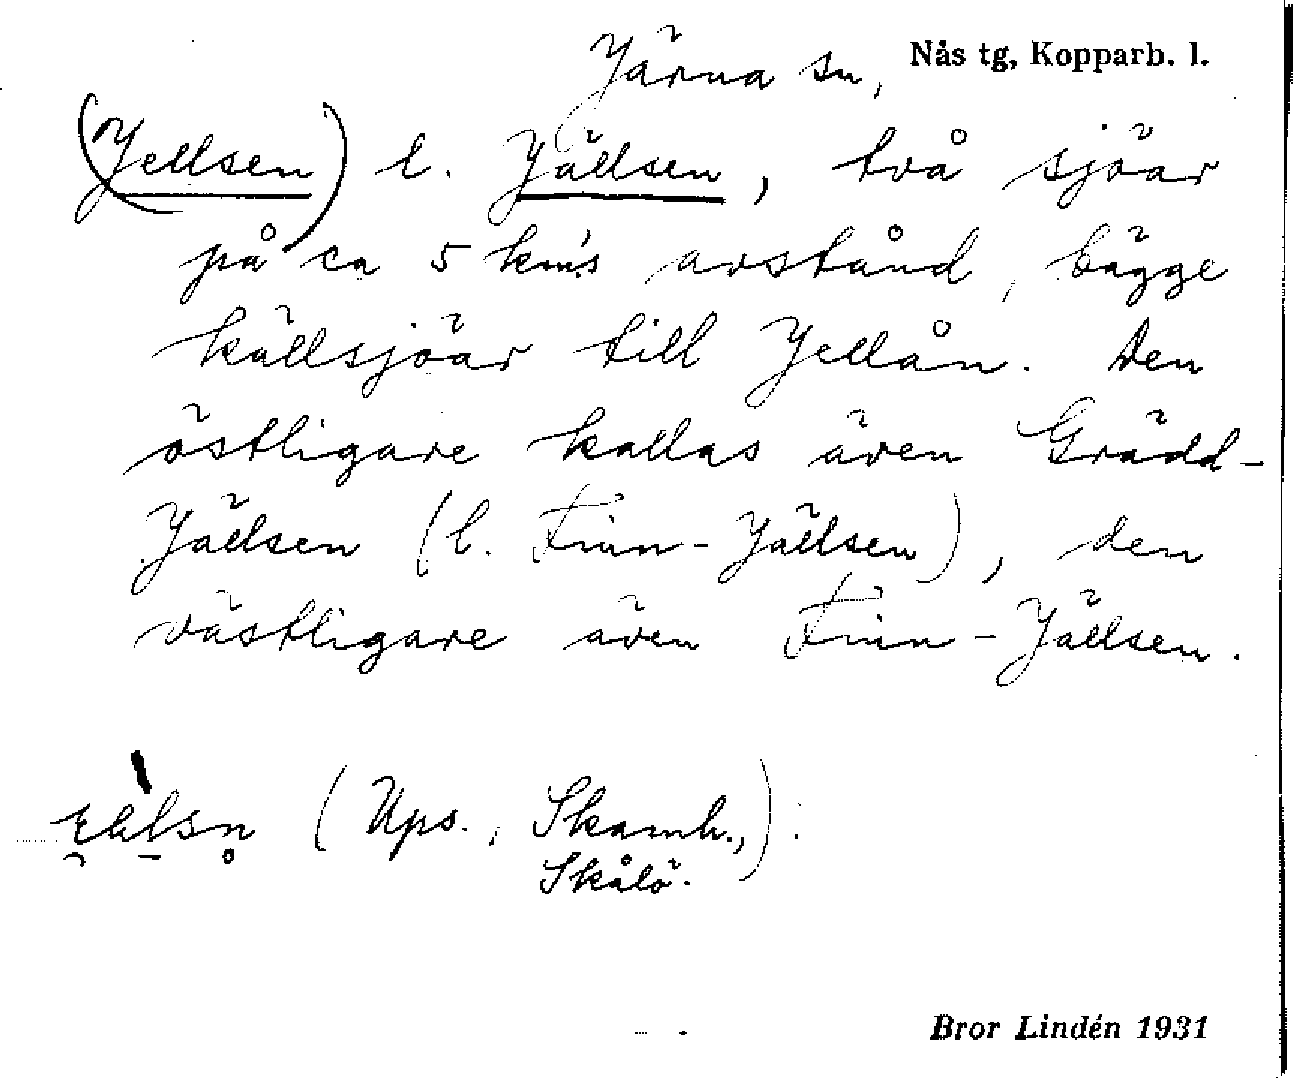 Järna sn, Nås tg, Kopparb. l.
(Jellsen) l. Jällsen, två sjöar
på ca 5 km:s avstånd, bägge
källsjöar till Jellån. Den
östligare kallas även Grädd-
Jällsen (l. Finn-Jällsen), den
västligare även Finn-Jällsen.
(Ups., Skamh.,):
Skålö.
Bror Lindén 1931